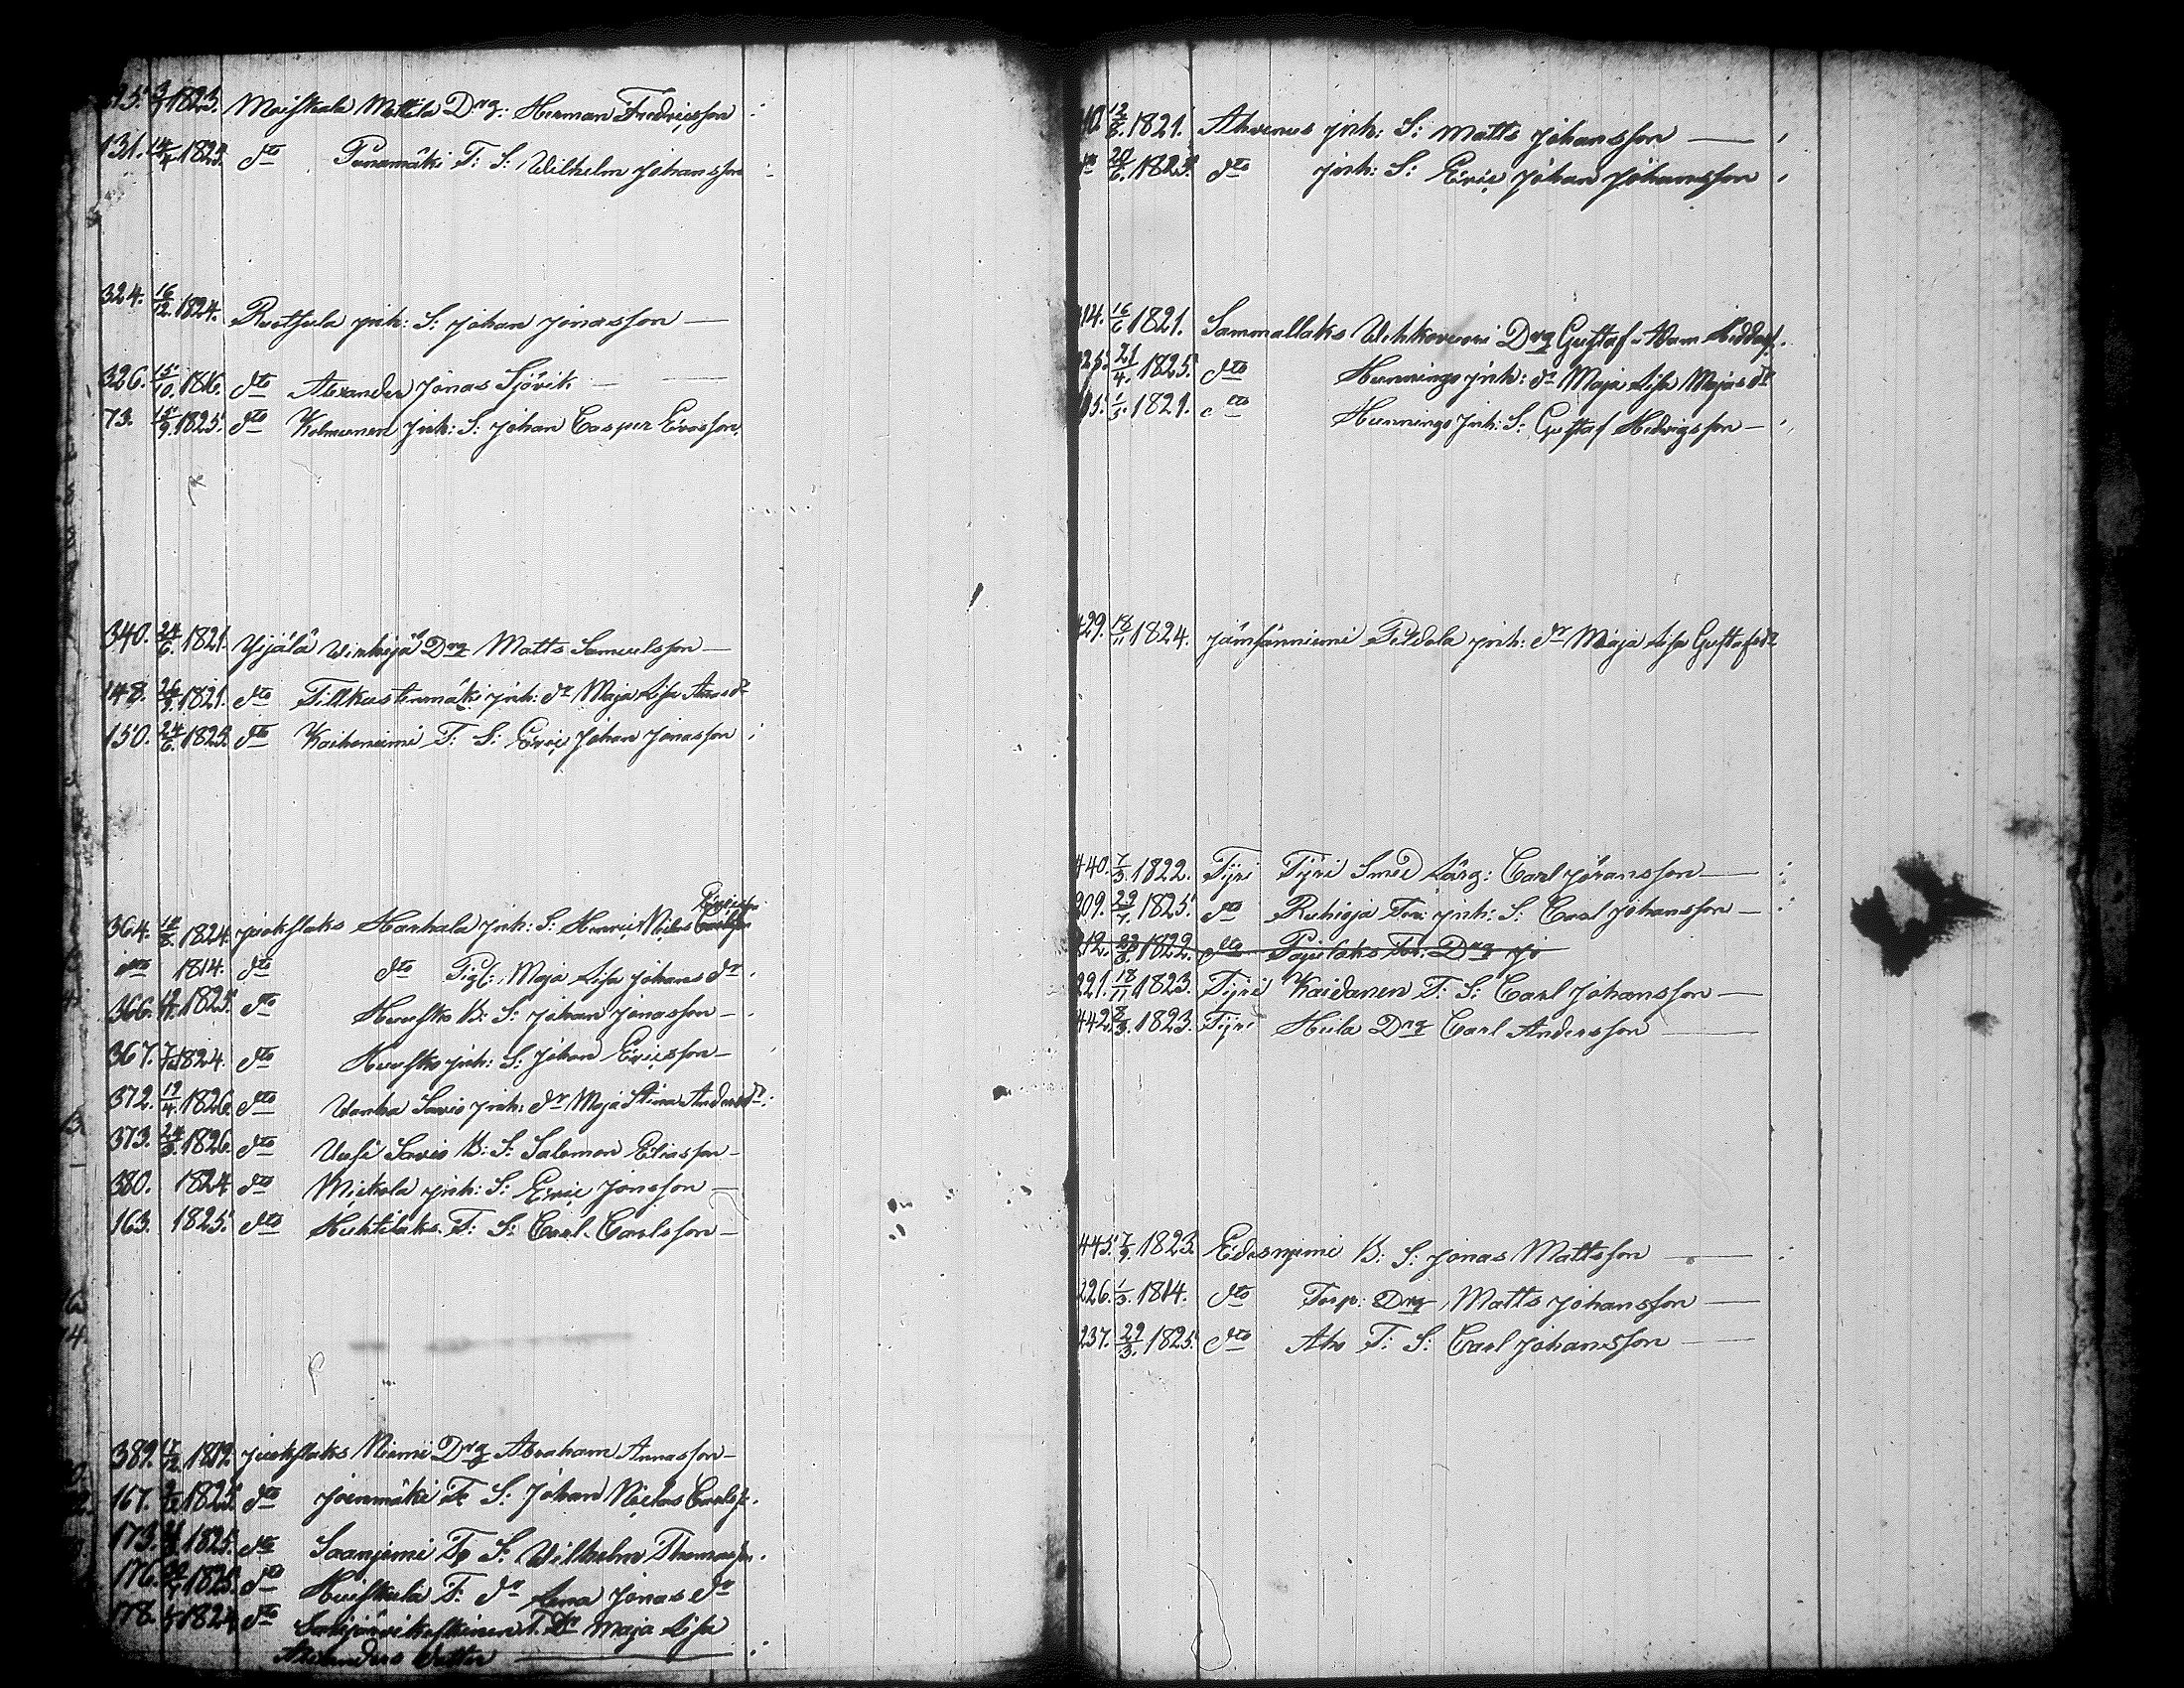 325. 3/7 1823. Moiskala Mattila Drg: Herman Fredricsson
131. 14/4 1823. dto Punamäki T: S: Wilhelm Johansson
324. 16/12. 1824. Ruotsula Inh: S: Johan Jonasson —
326. 15/10. 1816. dto Alexander Jonas Sjövik —
73. 15/9. 1825. dto Kolmunen Inh: S: Johan Casper Ericsson.
340. 24/6. 1821. Yijälä Drg Matts Samuelsson —
148. 26/9. 1821. dto Tillkustenmäki Inh: dr Maja Lisa
150. 24/6. 1823. dto Kaiheniemi T: S: Eric Johan Jonasson
364. 1824. Juokslaks Harhala Inh: S: Henric Niclas
dto 1814. dto dto Pig: Maja Lisa Johans dr
366. 1825. dto Huusko B: S: Johan Jonasson —
367. 1824. dto Huusko Inh: S: Johan Ericsson —
372. 19/4. 1826. dto Wanha Savio Inh: dr Maja Stina Anders dr
373. 24/3. 1826. dto Uusi Savio B: S: Salomon Eliasson —
380. 1824. dto Mickola Inh: S: Eric Jonsson —
163. 1825. dto Huhtilaks T: S: Carl Carlsson —
389. 17/12. 1819. Juokslaks Niemi Drg Abraham Annasson —
167. 1825. dto Joenmäki T: S: Johan Niclas Carlss.
173. 1825. dto Saaniemi T: S: Wilhelm Thomasson.
176. 1825. dto Huiskula T: dr Lena Jonas dr
178. 1824. dto T. Dr Maja Lisa
Alexanders Dotter —
410. 12/8. 1821. Ahvenus Inh: S: Matts Johansson —
dto 20/6. 1823. dto Inh: S: Eric Johan Johansson
414. 16/6 1821. Sammallaks Drg Gustaf
21/4. 1825. dto Hunninge Inh: dr Maja Lisa Majas dr
1/5. 1821. dto Hunninge Inh: S: Gustaf Hedvigsson —
429. 18/11 1824. Jämsänniemi Inh: dr Maja Lisa Gustafs dr
440. 7/3. 1822. Tijri Tijri Smed Lärg: Carl Göransson —
209. 29/7. 1825. dto Ruhioja Tor: Inh: S: Carl Johansson —
212. 23/8. 1822. dto Pajulaks Tor: Drg Jo
221. 18/11 1823. Tijri Kaidanen T: S: Carl Johansson —
442. 8/3. 1823. Tijri Heila Drg Carl Andersson —
445. 7/9. 1823. Edesniemi B: S: Jonas Mattsson —
226. 1/3. 1814. dto Torp: Drg Matts Johansson —
237. 29/3. 1825. dto Aho T: S: Carl Johansson —